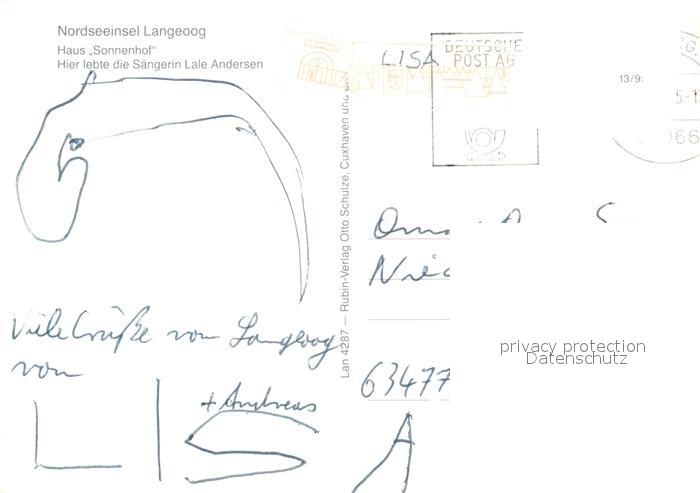 Nordseeinsel Langeoog
Haus „Sonnenhof"
Hier lebte die Sängerin Lale Andersen
LISA
DEUTSCHE
POST AG
13/9
5-1
66
Lan 4287 — Rubin-Verlag Otto Schulze, Cuxhaven und
Oma
63477
privacy protection
Datenschutz
Viele Grüße von Langeoog
von
+ Andreas
LISA